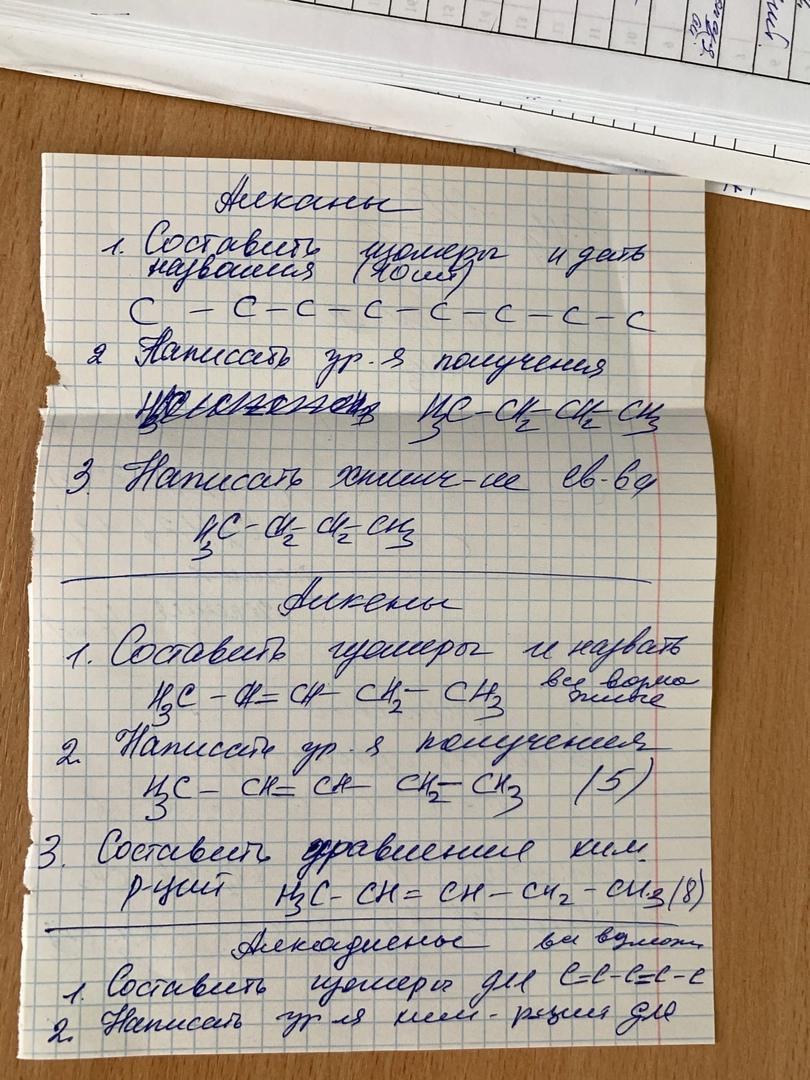 Алканы
1. Составить изомеры и дать
названия (10 шт)
C – C – C – C – C – C – C – C
2 Написать ур-я получения
H₃C – CH₂ – CH₂ – CH₃
3. Написать химич-ие св-ва
H₃C – CH₂ – CH₂ – CH₃
Алкены
1. Составить изомеры и назвать
все возмо
жные
H₃C – CH = CH – CH₂ – CH₃
2. Написать ур-я получения
H₃C – CH = CH – CH₂ – CH₃ (5)
3. Составить уравнения хим.
р-ций H₃C – CH = CH – CH₂ – CH₃ (8)
Алкадиены все возможн
1. Составить изомеры для C=C-C=C-C
2. Написать ур-ля хим-рции для